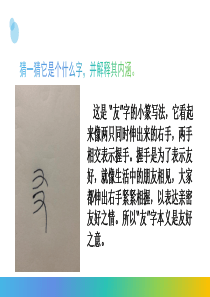 猜一猜它是个什么字，并解释其内涵。
这是“友”字的小篆写法，它看起
来像两只同时伸出来的右手，两手
相交表示握手。握手是为了表示友
好，就像生活中的朋友相见，大家
都伸出右手紧紧相握，以表达亲密
友好之情。所以“友”字本义是友好
之意。